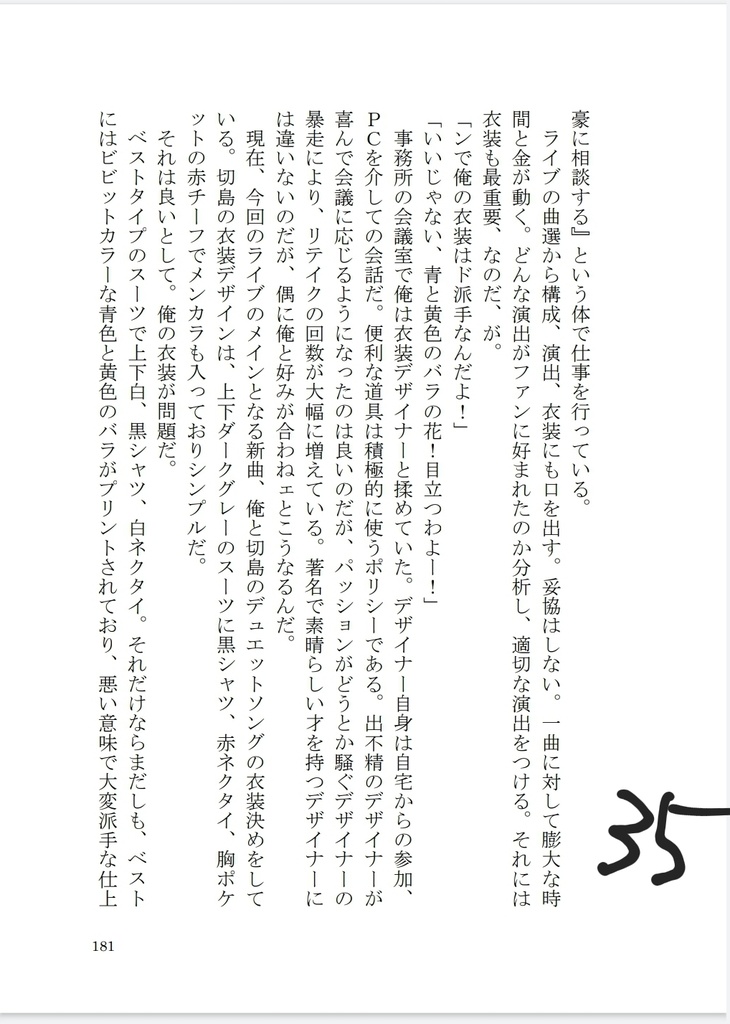 豪に相談する』という体で仕事を行っている。
　ライブの曲選から構成、演出、衣装にも口を出す。妥協はしない。一曲に対して膨大な時
間と金が動く。どんな演出がファンに好まれたのか分析し、適切な演出をつける。それには
衣装も最重要、なのだ、が。
「ンで俺の衣装はド派手なんだよ！」
「いいじゃない、青と黄色のバラの花！目立つわよー！」
　事務所の会議室で俺は衣装デザイナーと揉めていた。デザイナー自身は自宅からの参加、
ＰＣを介しての会話だ。便利な道具は積極的に使うポリシーである。出不精のデザイナーが
喜んで会議に応じるようになったのは良いのだが、パッションがどうとか騒ぐデザイナーの
暴走により、リテイクの回数が大幅に増えている。著名で素晴らしい才を持つデザイナーに
は違いないのだが、偶に俺と好みが合わねェとこうなるんだ。
　現在、今回のライブのメインとなる新曲、俺と切島のデュエットソングの衣装決めをして
いる。切島の衣装デザインは、上下ダークグレーのスーツに黒シャツ、赤ネクタイ、胸ポケ
ットの赤チーフでメンカラも入っておりシンプルだ。
　それは良いとして。俺の衣装が問題だ。
　ベストタイプのスーツで上下白、黒シャツ、白ネクタイ。それだけならまだしも、ベスト
にはビビットカラーな青色と黄色のバラがプリントされており、悪い意味で大変派手な仕上
35
181